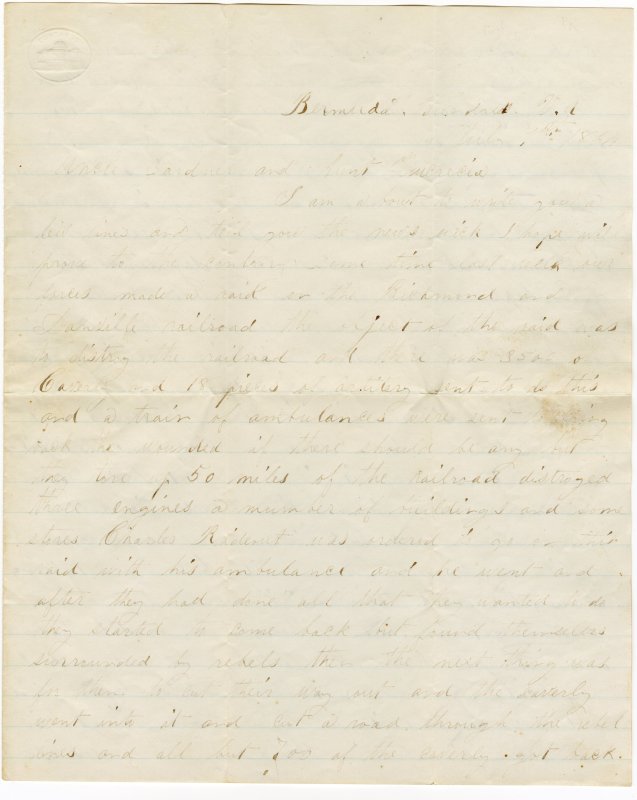 Bermuda Hundred Va
July 1864
Uncle Gardner and Aunt
I am about to write you a
few lines and tell you the news wich I hope will
prove to be some time last week our
forces made a raid on the Richmond and
Dannville railroad the object of the raid was
to distroy the railroad and there was 3500 o
Caverly and 18 pieces of artilery sent to do this
and a train of ambulances were sent to bring
back the wounded if there should be any but
they tore up 50 miles of the railroad distroyed
three engines a number of buildings and some
stores Charles was ordered to go on this
raid with his ambulance and he went and
after they had done all that they wanted to do
they started to come back but found themselves
surrounded by rebels then the next thing was
for them to cut their way out and the Caverly
went into it and cut a road through the rebel
lines and all but 700 of the caverly got back.